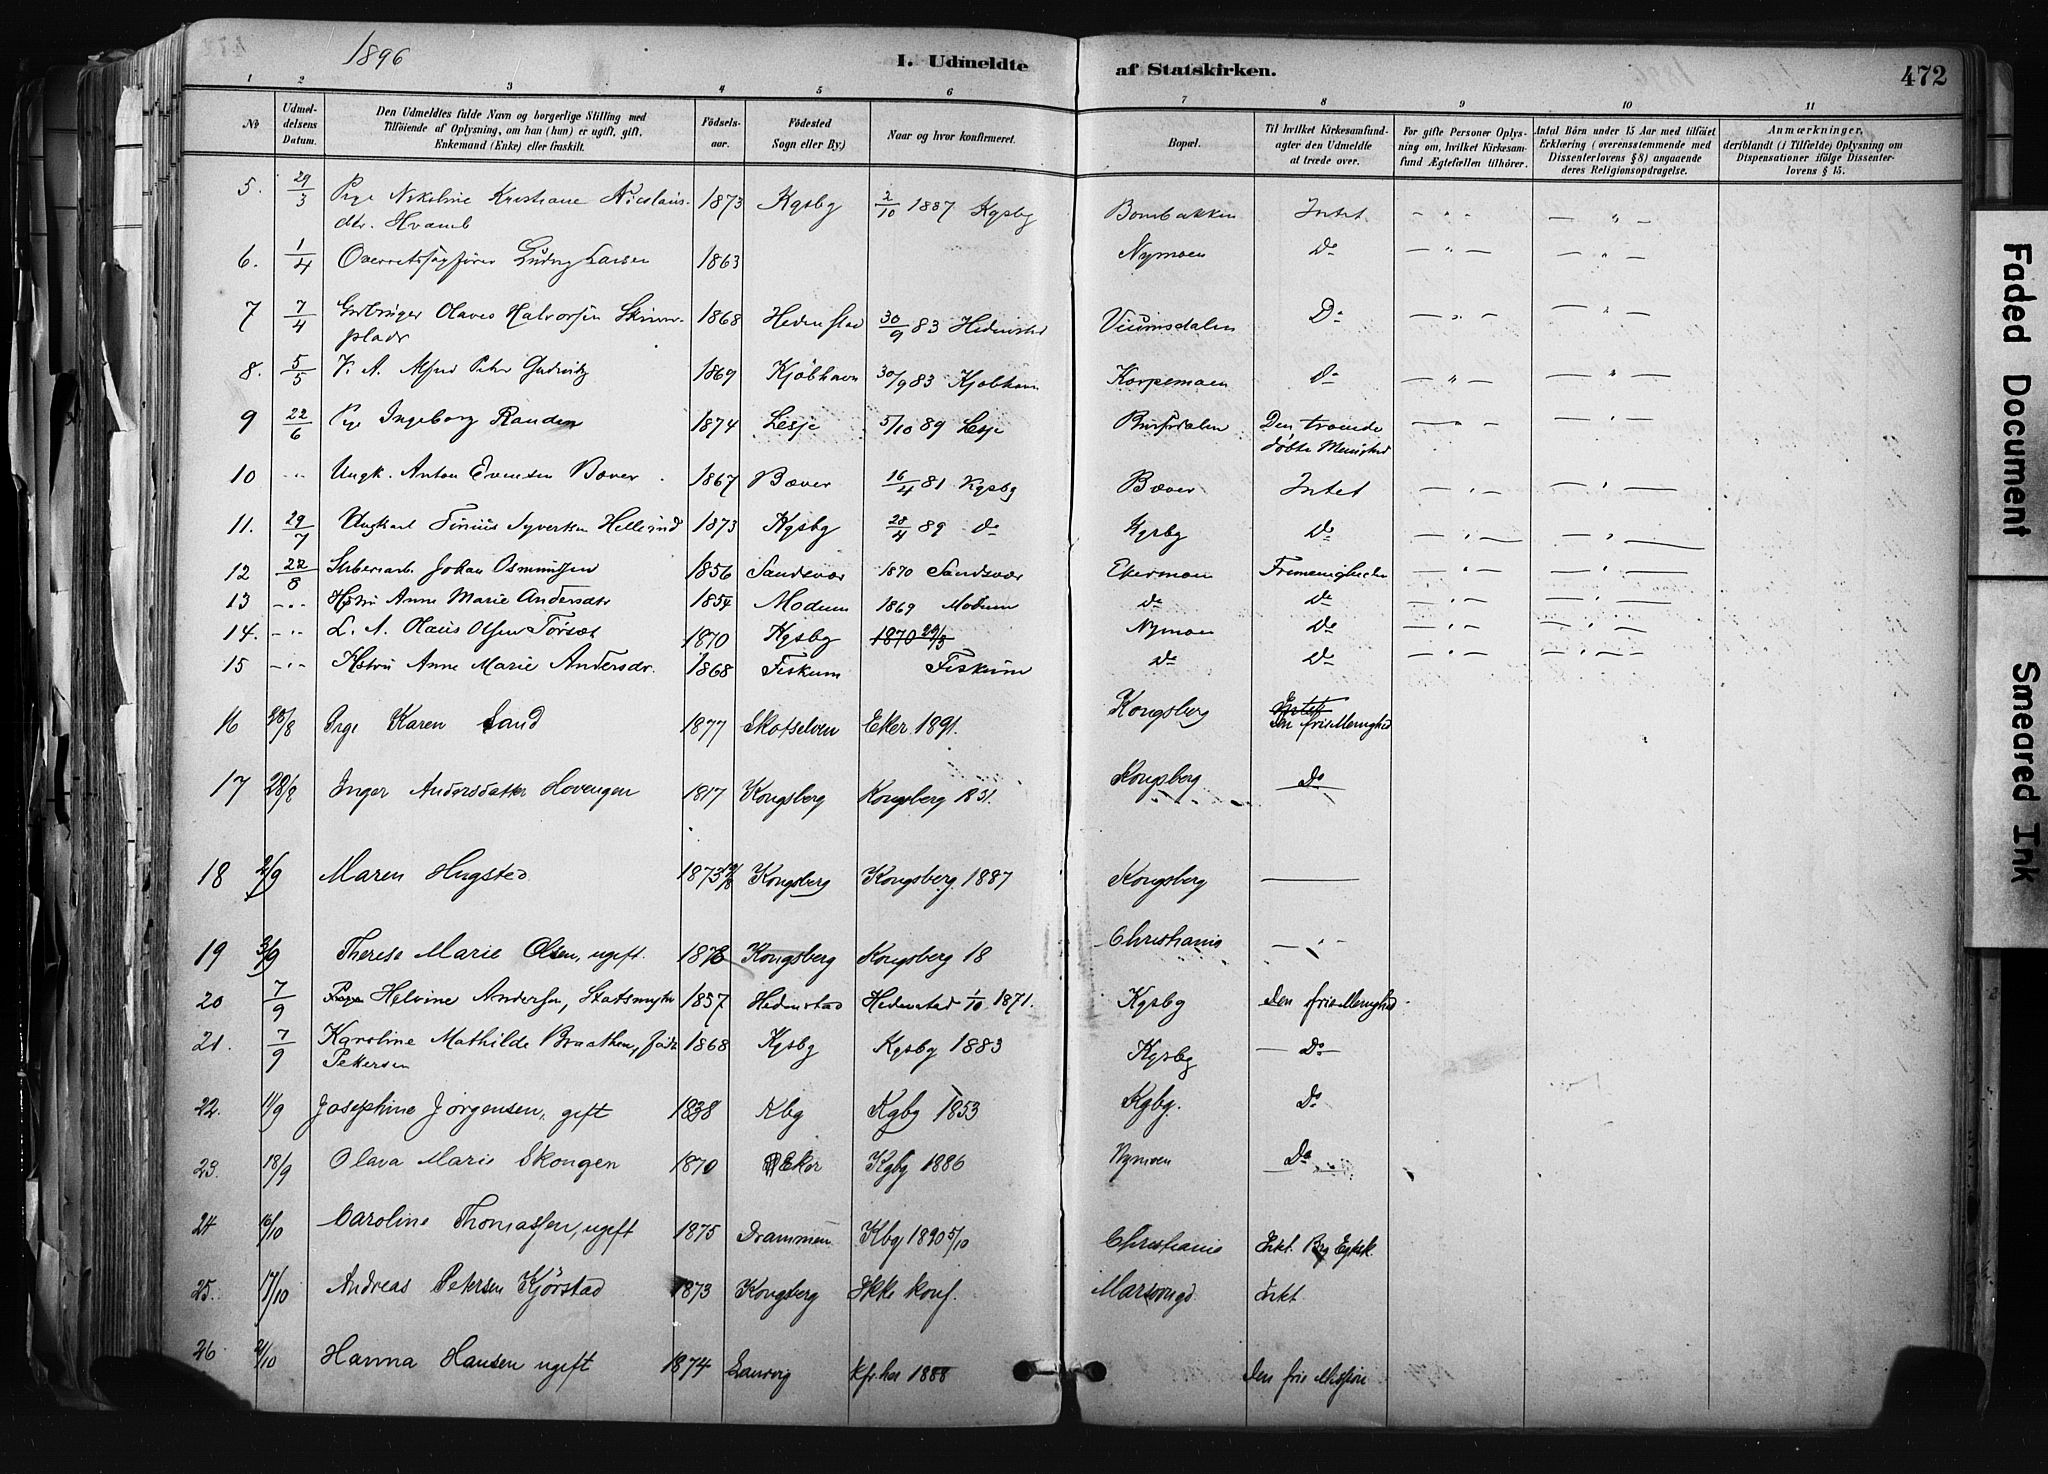 1896
I. Udmeldte af Statskirken.
472
1 2 3 4 5 6 7 8 9 10 11
No
Udmeldelsens Datum.
Den Udmeldtes fulde Navn og borgerlige Stilling med
Tilføiende af Oplysning, om han (hun) er ugift, gift,
Enkemand (Enke) eller fraskilt.
Fødselsaar.
Fødested
Sogn eller By.)
Naar og hvor konfirmeret.
Bopæl.
Til hvilket Kirkesamfund-
agter den Udmeldte
at træde over.
For gifte Personer Oplys-
ning om, hvilket Kirkesam-
fund Ægtefællen tilhører.
Antal Børn under 15 Aar med tilføiet
Erklæring (overensstemmende med
Dissenterlovens § 8) angaaende
deres Religionsopdragelse.
Anmærkninger,
deriblandt (i Tilfælde) Oplysning om
Dispensationer ifølge Dissenter-
lovens § 15.
5. 29/3 Pige Nikoline Kristiane Nicolais- 1873 Kgsby 2/10 1887 Kgsby Bombakken Intet — " — — " —
dtr. Hvamb
6. 1/4 Overretssagfører Ludvig Larsen 1863 Nymoen Do — " — — " —
7 7/4 Olaves Halvorsen 1868 Hedenstad 30/9 83 Hedenstad Do — " — — " —
8. 5/5 Alfred Peter 1869 Kjöbhavn 30/9 83 Kjøbhavn Korpemoen Do — " — — " —
9 22/6 Pige Ingeborg Randen 1874 Lesje 5/10 89 Lesje Den troende — " — — " —
døbte Menighed
10 - " - Ungk. Anton Evensen Bæver 1867 Bæver 16/4 81 Kgsbg Bæver Intet — " — — " —
11. 29/7 Ungkarl Syvertsen 1873 Kgsbg 28/4 89 Do Kgsbg Do — " — — " —
12 22/8 Johan Osmundsen 1856 Sandsvær 1870 Sandsvær Ekermoen — " — — " —
13 - " - Hstru Anne Marie Andersdtr 1854 Modum 1869 Modum Do Do — " — — " —
14. - " - Olaus Olsen 1870 Kgsbg 1870 29/3 Nymoen Do — " — — " —
15 - " - Hstru Anne Marie Andersdr. 1868 Fiskum Fiskum Do Do — " — — " —
16 28/8 Pige Karen Sand 1877 Skotselven Eker 1891. Kongsberg Intet
den fri Menighed
17 28/8 Inger Andersdatter Hovengen 1817 Kongsberg Kongsberg 1831. Kongsberg Do
18 2/9 Maren Hugsted 1873 Kongsberg Kongsberg 1887 Kongsberg ———
19 3/9 Therese Marie Olsen, ugift. 1878 Kongsberg Kongsberg 18 Christiania — " —
20 7/9 Pige Helvine Andersen, 1857 Hedenstad Hedenstad 1/10 1871. Kgsbg den fri Menighed
21. 7/9 Karoline Mathilde Braathen, født 1868 Kgsbg Kgsbg 1883 Kgsbg — Do
Petersen
22. 11/9 Josephine Jørgensen, gift 1838 Kbg Kgbg 1853 Kgbg. Do
23. 18/9 Olava Marie Skougen 1870 Eker Kgbg 1886 Nymoen Do
24 16/10 Caroline Thomassen, ugift 1875 Drammen Kbg 1890 5/10 Christiania
25. 17/10 Andreas Petersen Kjörstad 1873 Kongsberg Ikke konf. Intet
26 21/10 Hanna Hansen ugift 1874 Laurvig 1888 den fri Mission
Faded Document
Smeared Ink